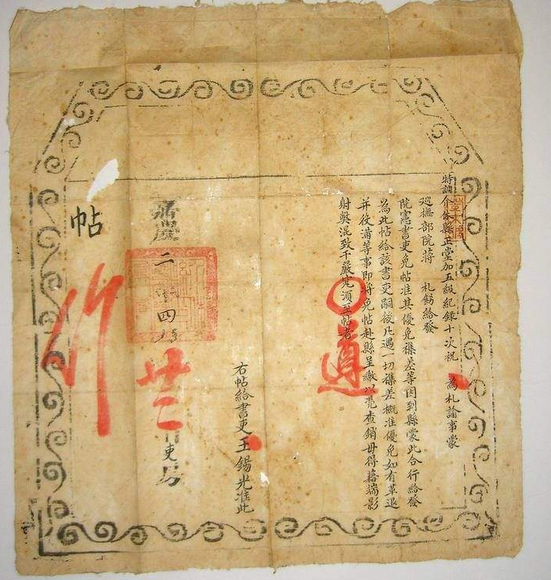 特調介休縣正堂加五級紀錄十次祝 為札諭事蒙
巡撫部院蔣 札 給發
院憲書吏免帖准其優免襍差等因到縣蒙此合行給發
為此帖給該書吏嗣後凡遇一切襍差概准優免如有革退
并役滿等事即將免帖赴縣呈繳以凭查銷毋得藉端影
射 混致干嚴究須至帖者
遵
右帖給書吏王錫光准此
嘉慶二 四 廿二
吏房
帖
行